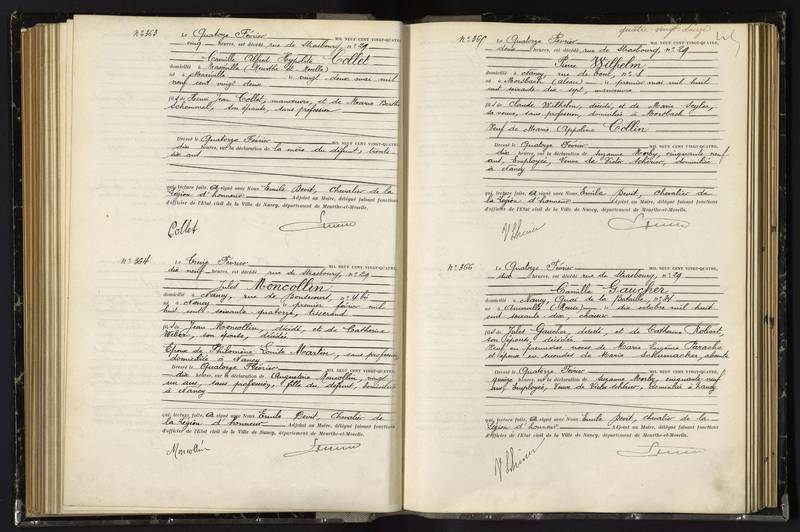 N° 363
Le Quatorze Février
MIL NEUF CENT VINGT-QUATRE,
cinq heures, est décédé, rue de Strasbourg, n° 29
Camille Alfred Hypolite Collet
domicilié à (Meurthe & Moselle)
né à vingt deux mai mil
neuf cent vingt deux
fils de Henri Jean Collet, manoeuvre, et de Marie Berthe
son épouse, sans profession
Dressé le Quatorze Février
MIL NEUF CENT VINGT-QUATRE,
dix heures, sur la déclaration de la mère du défunt, trente
six ans
qui, lecture faite, a signé avec Nous Emile Devit, Chevalier de la
Légion d'honneur Adjoint au Maire, délégué faisant fonctions
d'officier de l'Etat civil de la Ville de Nancy, département de Meurthe-et-Moselle.
Collet
N° 364
Le Treize Février
MIL NEUF CENT VINGT-QUATRE,
dix neuf heures, est décédé, rue de Strasbourg, n° 29
Jules Moncollin
domicilié à Nancy, rue de n° 4 bis
né à Nancy premier février mil
huit cent soixante quatorze, tisserand
fils de Jean Moncollin, décédé, et de Catherine
Wéber, son épouse, décédée
Epoux de Philomène Louise Martin, sans profession
domiciliée à Nancy
Dressé le Quatorze Février
MIL NEUF CENT VINGT-QUATRE,
dix heures, sur la déclaration de Augustine Moncollin, vingt
un ans, sans profession, fille du défunt, domiciliée
à Nancy
qui, lecture faite, a signé avec Nous Emile Devit, Chevalier de
la Légion d'honneur Adjoint au Maire, délégué faisant fonctions
d'officier de l'Etat civil de la Ville de Nancy, département de Meurthe-et-Moselle.
Moncollin
quatre vingt douze
N° 365
Le Quatorze Février
MIL NEUF CENT VINGT-QUATRE,
deux heures, est décédé, rue de Strasbourg, n° 29
Pierre Wilhelm
domicilié à Nancy, rue de Toul, n° 1
né à Morsbach (Alsace) premier mai mil huit
cent soixante dix sept, manoeuvre
fils de Claude Wilhelm, décédé, et de Marie
sa veuve, sans profession, domiciliée à Morsbach
Veuf de Marie Appoline Collin
Dressé le Quatorze Février
MIL NEUF CENT VINGT-QUATRE,
dix heures, sur la déclaration de Suzanne Morby, cinquante neuf
ans, Employée, Veuve de Victor Schérier, domiciliée
à Nancy
qui, lecture faite, a signé avec Nous Emile Devit, chevalier de
la Légion d'honneur Adjoint au Maire, délégué faisant fonctions
d'officier de l'Etat civil de la Ville de Nancy, département de Meurthe-et-Moselle.
N° 366
Le Quatorze Février
MIL NEUF CENT VINGT-QUATRE,
dix heures, est décédé rue de Strasbourg, n° 29
Camille Gaucher
domicilié à Nancy, Quai de la Bataille, n° 31
né à (Meuse) dix octobre mil huit
cent soixante dix,
fils de Jules Gaucher, décédé, et de Catherine Robert,
son épouse, décédée
Veuf en premières noces de Marie Eugénie Parache
et époux en secondes de Marie Schumacher,
Dressé le Quatorze Février
MIL NEUF CENT VINGT-QUATRE,
quinze heures, sur la déclaration de Suzanne Morby, cinquante neuf
ans, Employée, Veuve de Victor Schérier, domiciliée à Nancy
qui, lecture faite, a signé avec Nous Emile Devit, chevalier de la
Légion d'honneur Adjoint au Maire, délégué faisant fonctions
d'officier de l'Etat civil de la Ville de Nancy, département de Meurthe-et-Moselle.